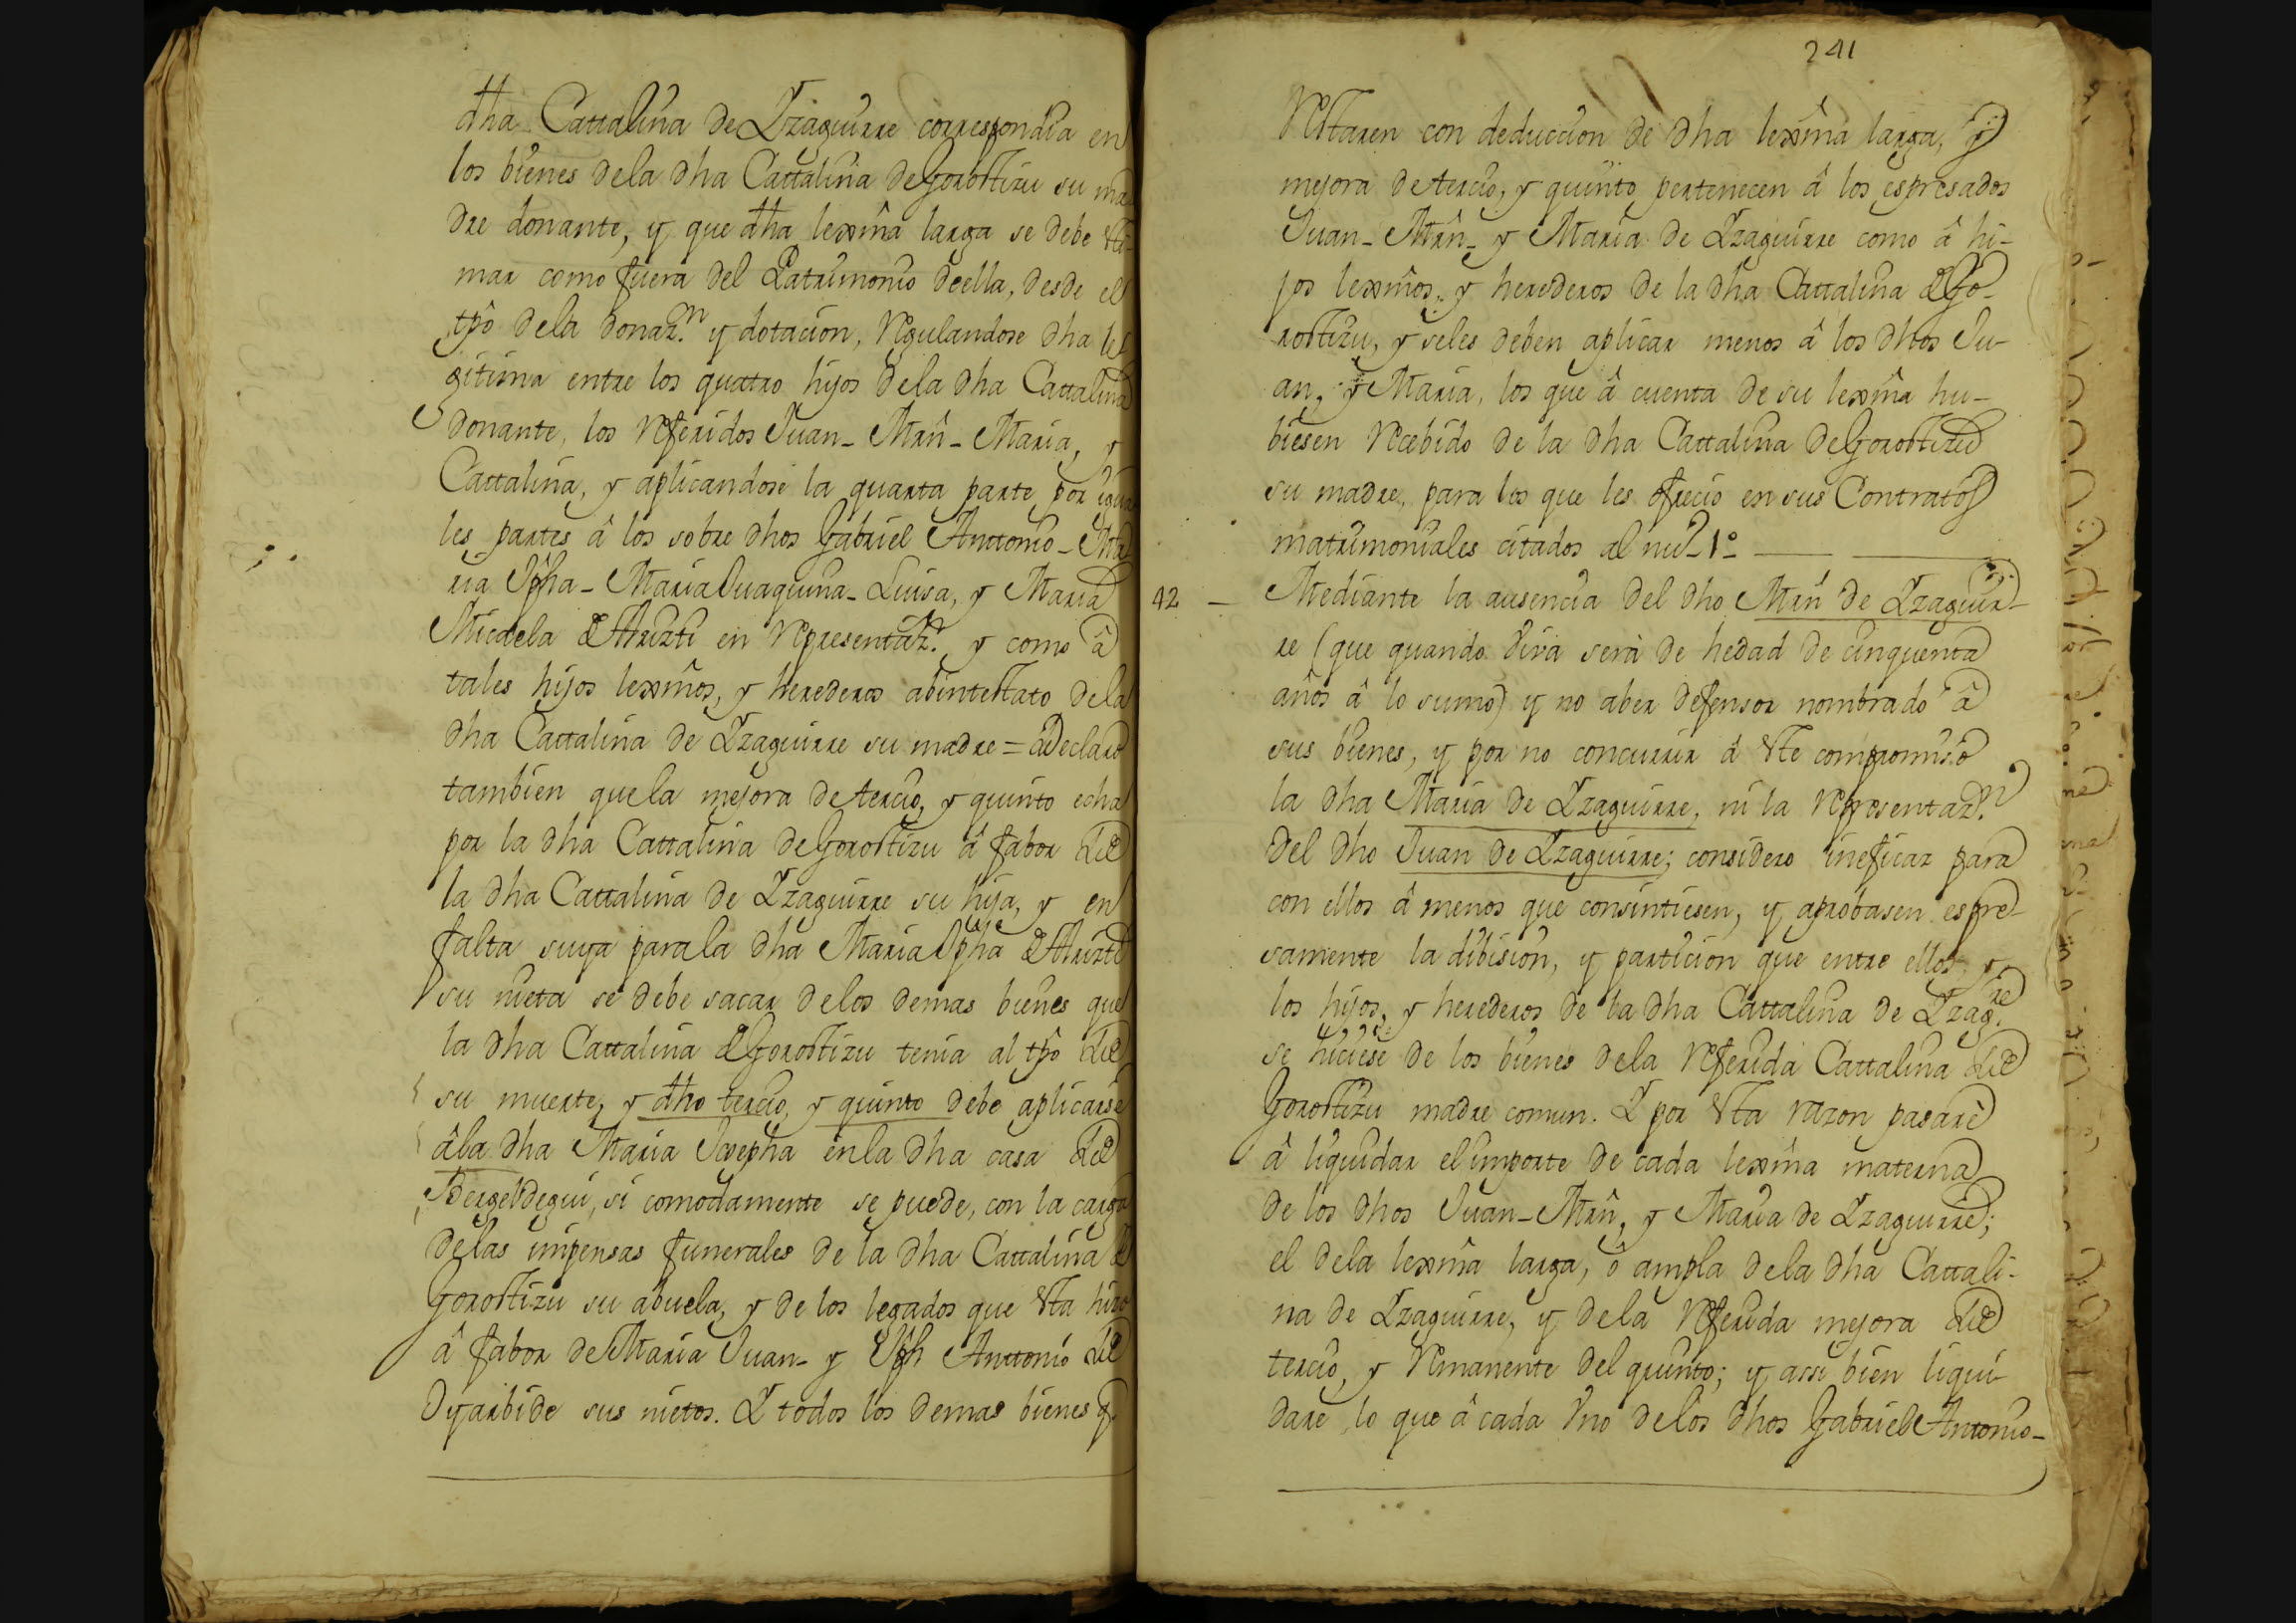 dha Cattalina de Yzaguirre correspondia en
los bienes dela dha Cattalina de Gorostizu su ma
dre donante, y que dha lexma larga se debe esti-
mar como fuera del Patrimonio de ella, desde el
tpô dela donaz.n y dotacion, Regulandose dha le
gitima entre los quatro hijos dela dha Cattalina
donante, los Referidos Juan- Mrñ- Maria, y
Cattalina, y aplicandose la quarta parte por igua
les partes â los sobre dhos Gabriel Anttonio- Ma
ria Jpha- Maria Juaquina- Luisa, y Maria
Micaela de Aruzti en Representaz.n y como â
tales hijos lexmos, y herederos abintestato dela
dha Cattalina de Yzaguirre su madre = Declaro
tambien que la mejora de tercio, y quinto echa
por la dha Cattalina de Gorostizu â fabor de
la dha Cattalina de Yzaguirre su hija, y en
falta suya para la dha Maria Jpha de Aruzti
su nieta se debe sacar delos demas bienes que
la dha Cattalina de Gorostizu tenia al tpô de
su muerte, y dho tercio, y quinto debe aplicarse
âla dha Maria Josepha en la dha casa de
Bergeldegui, si comodamente se puede, con la carga
de las impensas funerales de la dha Cattalina de
Gorostizu su abuela, y de los legados que esta hizo
â fabor de Maria Juan- y Jph Anttonio de
Oyarbide sus nietos. Y todos los demas bienes q.
241
Restaren con deduccion de dha lexma larga, y
mejora de tercio, y quinto pertenecen â los espresados
Juan- Mrñ- y Maria de Yzaguirre como â hi-
jos lexmos, y herederos de la dha Cattalina de Go-
rostizu, y seles deben aplicar menos â los dhos Ju-
an, y Maria, los que â cuenta de su lexma hu-
biesen Recebido de la dha Cattalina de Gorostizu
su madre, para los que les ofrecio en sus Contratos
matrimoniales citados al nu- 1º
42 - Mediante la ausencia del dho Mrñ de Yzaguir-
re (que quando viva serà de hedad de cinquenta
años â lo sumo) y no aber defensor nombrado â
sus bienes, y por no concurrir â este compromiso
la dha Maria de Yzaguirre, ni la Representaz.n
del dho Juan de Yzaguirre; considero ineficaz para
con ellos â menos que consintiesen, y aprobasen espre-
samente la dibision, y particion que entre ellos, y
los hijos, y herederos de la dha Cattalina de Yzag.re
se hiciese de los bienes dela Referida Cattalina de
Gorostizu madre comun. Y por esta razon pasarè
â liquidar el importe de cada lexma materna
de los dhos Juan- Mrñ, y Maria de Yzaguirre;
el dela lexma larga, ô ampla dela dha Cattali-
na de Yzaguirre, y dela Referida mejora de
tercio, y Remanente del quinto; y assi bien liqui-
dare lo que â cada Vno delos dhos Gabriel Antonio-